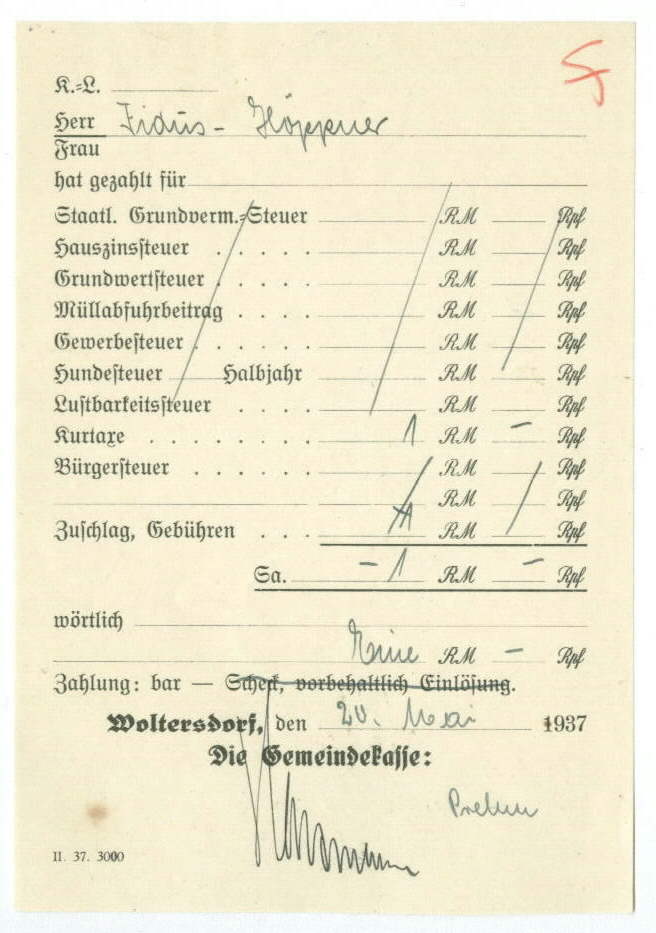 K.=L.
Herr Fidus - Höppner
Frau
hat gezahlt für
Staatl. Grundverm.=Steuer RM Rpf
Hauszinssteuer . . . . RM Rpf
Grundwertsteuer . . . . RM Rpf
Müllabfuhrbeitrag . . . . RM Rpf
Gewerbesteuer . . . . . RM Rpf
Hundesteuer Halbjahr RM Rpf
Lustbarkeitssteuer . . . . RM Rpf
Kurtaxe . . . . . . . . 1 RM - Rpf
Bürgersteuer . . . . . . RM Rpf
RM Rpf
Zuschlag, Gebühren . . . RM Rpf
Sa. - 1 RM - Rpf
wörtlich
Eine RM - Rpf
Zahlung: bar — Scheck, vorbehaltlich Einlösung.
Woltersdorf, den 20. Mai 1937
Die Gemeindekasse:
II. 37. 3000